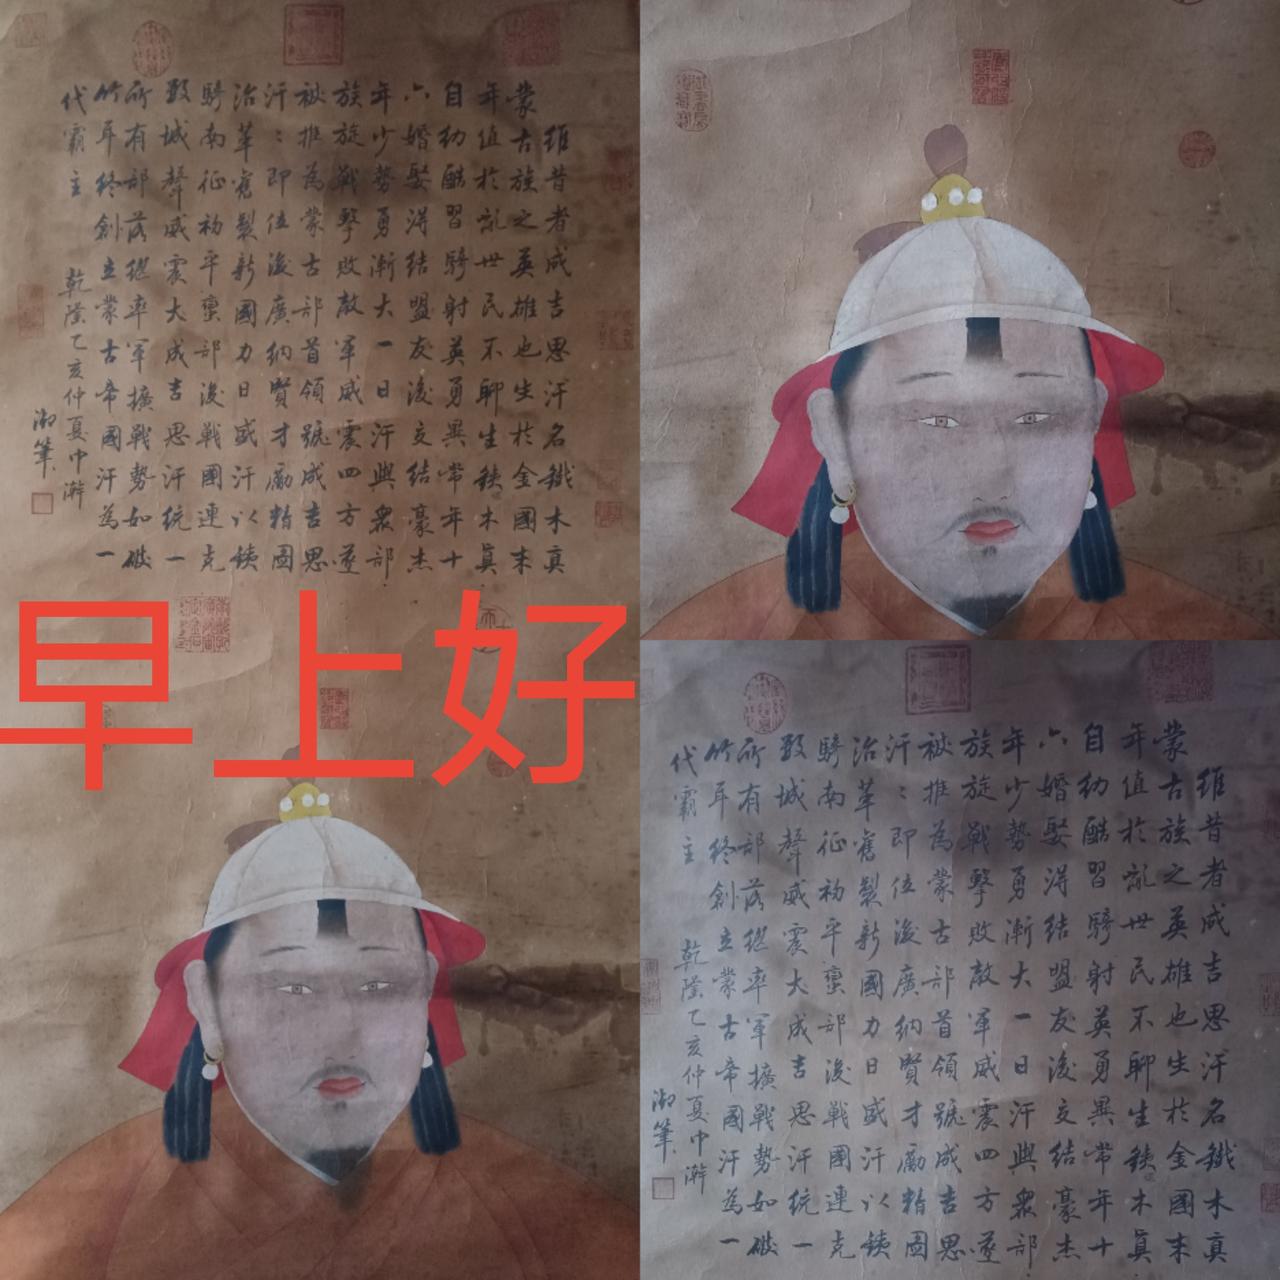 維昔者成吉思汗名鐵木真
蒙古族之英雄也生於金國末
年值於亂世民不聊生銕木真
自幼酷習騎射英勇異常年十
六婚娶得結盟友後交結豪杰
年少勢勇漸大一日汗與眾部
族旋戰擊敗敵軍威震四方遂
被推為蒙古部首領號成吉思
汗：即位後廣納賢才勵精圖
治革舊製新國力日盛汗以銕
騎南征初平蛮部後戰國連克
數城聲威震大成吉思汗統一
所有部落繼率軍擴戰勢如破
竹耳終創立蒙古帝國汗為一
代霸主 乾隆乙亥仲夏中澣
御筆
早上好
維昔者成吉思汗名鐵木真
蒙古族之英雄也生於金國末
年值於亂世民不聊生銕木真
自幼酷習騎射英勇異常年十
六婚娶得結盟友後交結豪杰
年少勢勇漸大一日汗與眾部
族旋戰擊敗敵軍威震四方遂
被推為蒙古部首領號成吉思
汗：即位後廣納賢才勵精圖
治革舊製新國力日盛汗以銕
騎南征初平蛮部後戰國連克
數城聲威震大成吉思汗統一
所有部落繼率軍擴戰勢如破
竹耳終創立蒙古帝國汗為一
代霸主 乾隆乙亥仲夏中澣
御筆